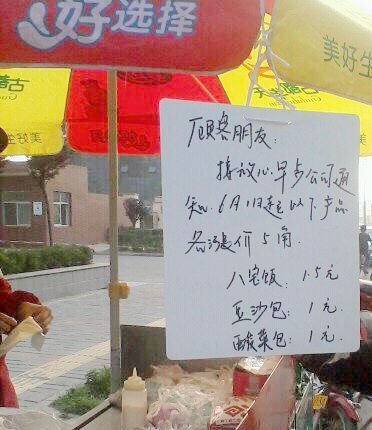 好选择
美好生
美好生
顾客朋友:
接放心早歺公司通
知.6月1日起以下产品
各涨价5角.
八宝饭: 1.5元
豆沙包: 1元
酸菜包: 1元.